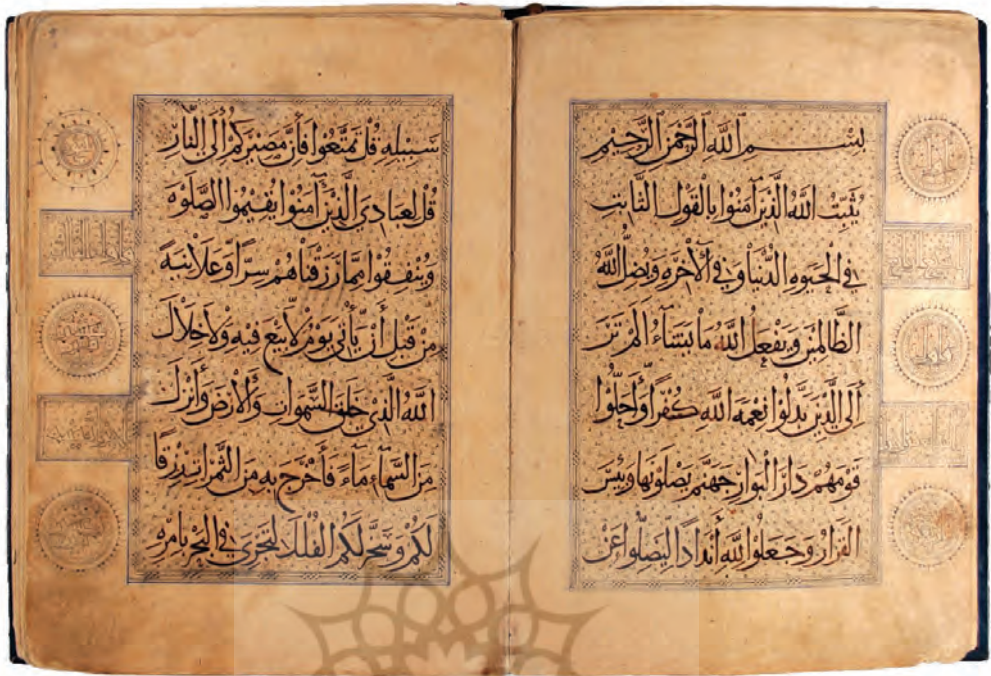 بسم الله الرحمن الرحيم
يثبت الله الذين آمنوا بالقول الثابت
في الحيوة الدنيا وفي الآخرة ويضل الله
الظالمين ويفعل الله ما يشاء ألم تر
إلى الذين بدلوا نعمة الله كفرا وأحلوا
قومهم دار البوار جهنم يصلونها وبئس
القرار وجعلوا لله أندادا ليضلوا عن
سبيله قل تمتعوا فإن مصيركم إلى النار
قل لعبادي الذين آمنوا يقيموا الصلوة
وينفقوا مما رزقناهم سرا وعلانية
من قبل أن يأتي يوم لا بيع فيه ولا خلال
الله الذي خلق السموات والأرض وأنزل
من السماء ماء فأخرج به من الثمرات رزقا
لكم وسخر لكم الفلك لتجري في البحر بأمره